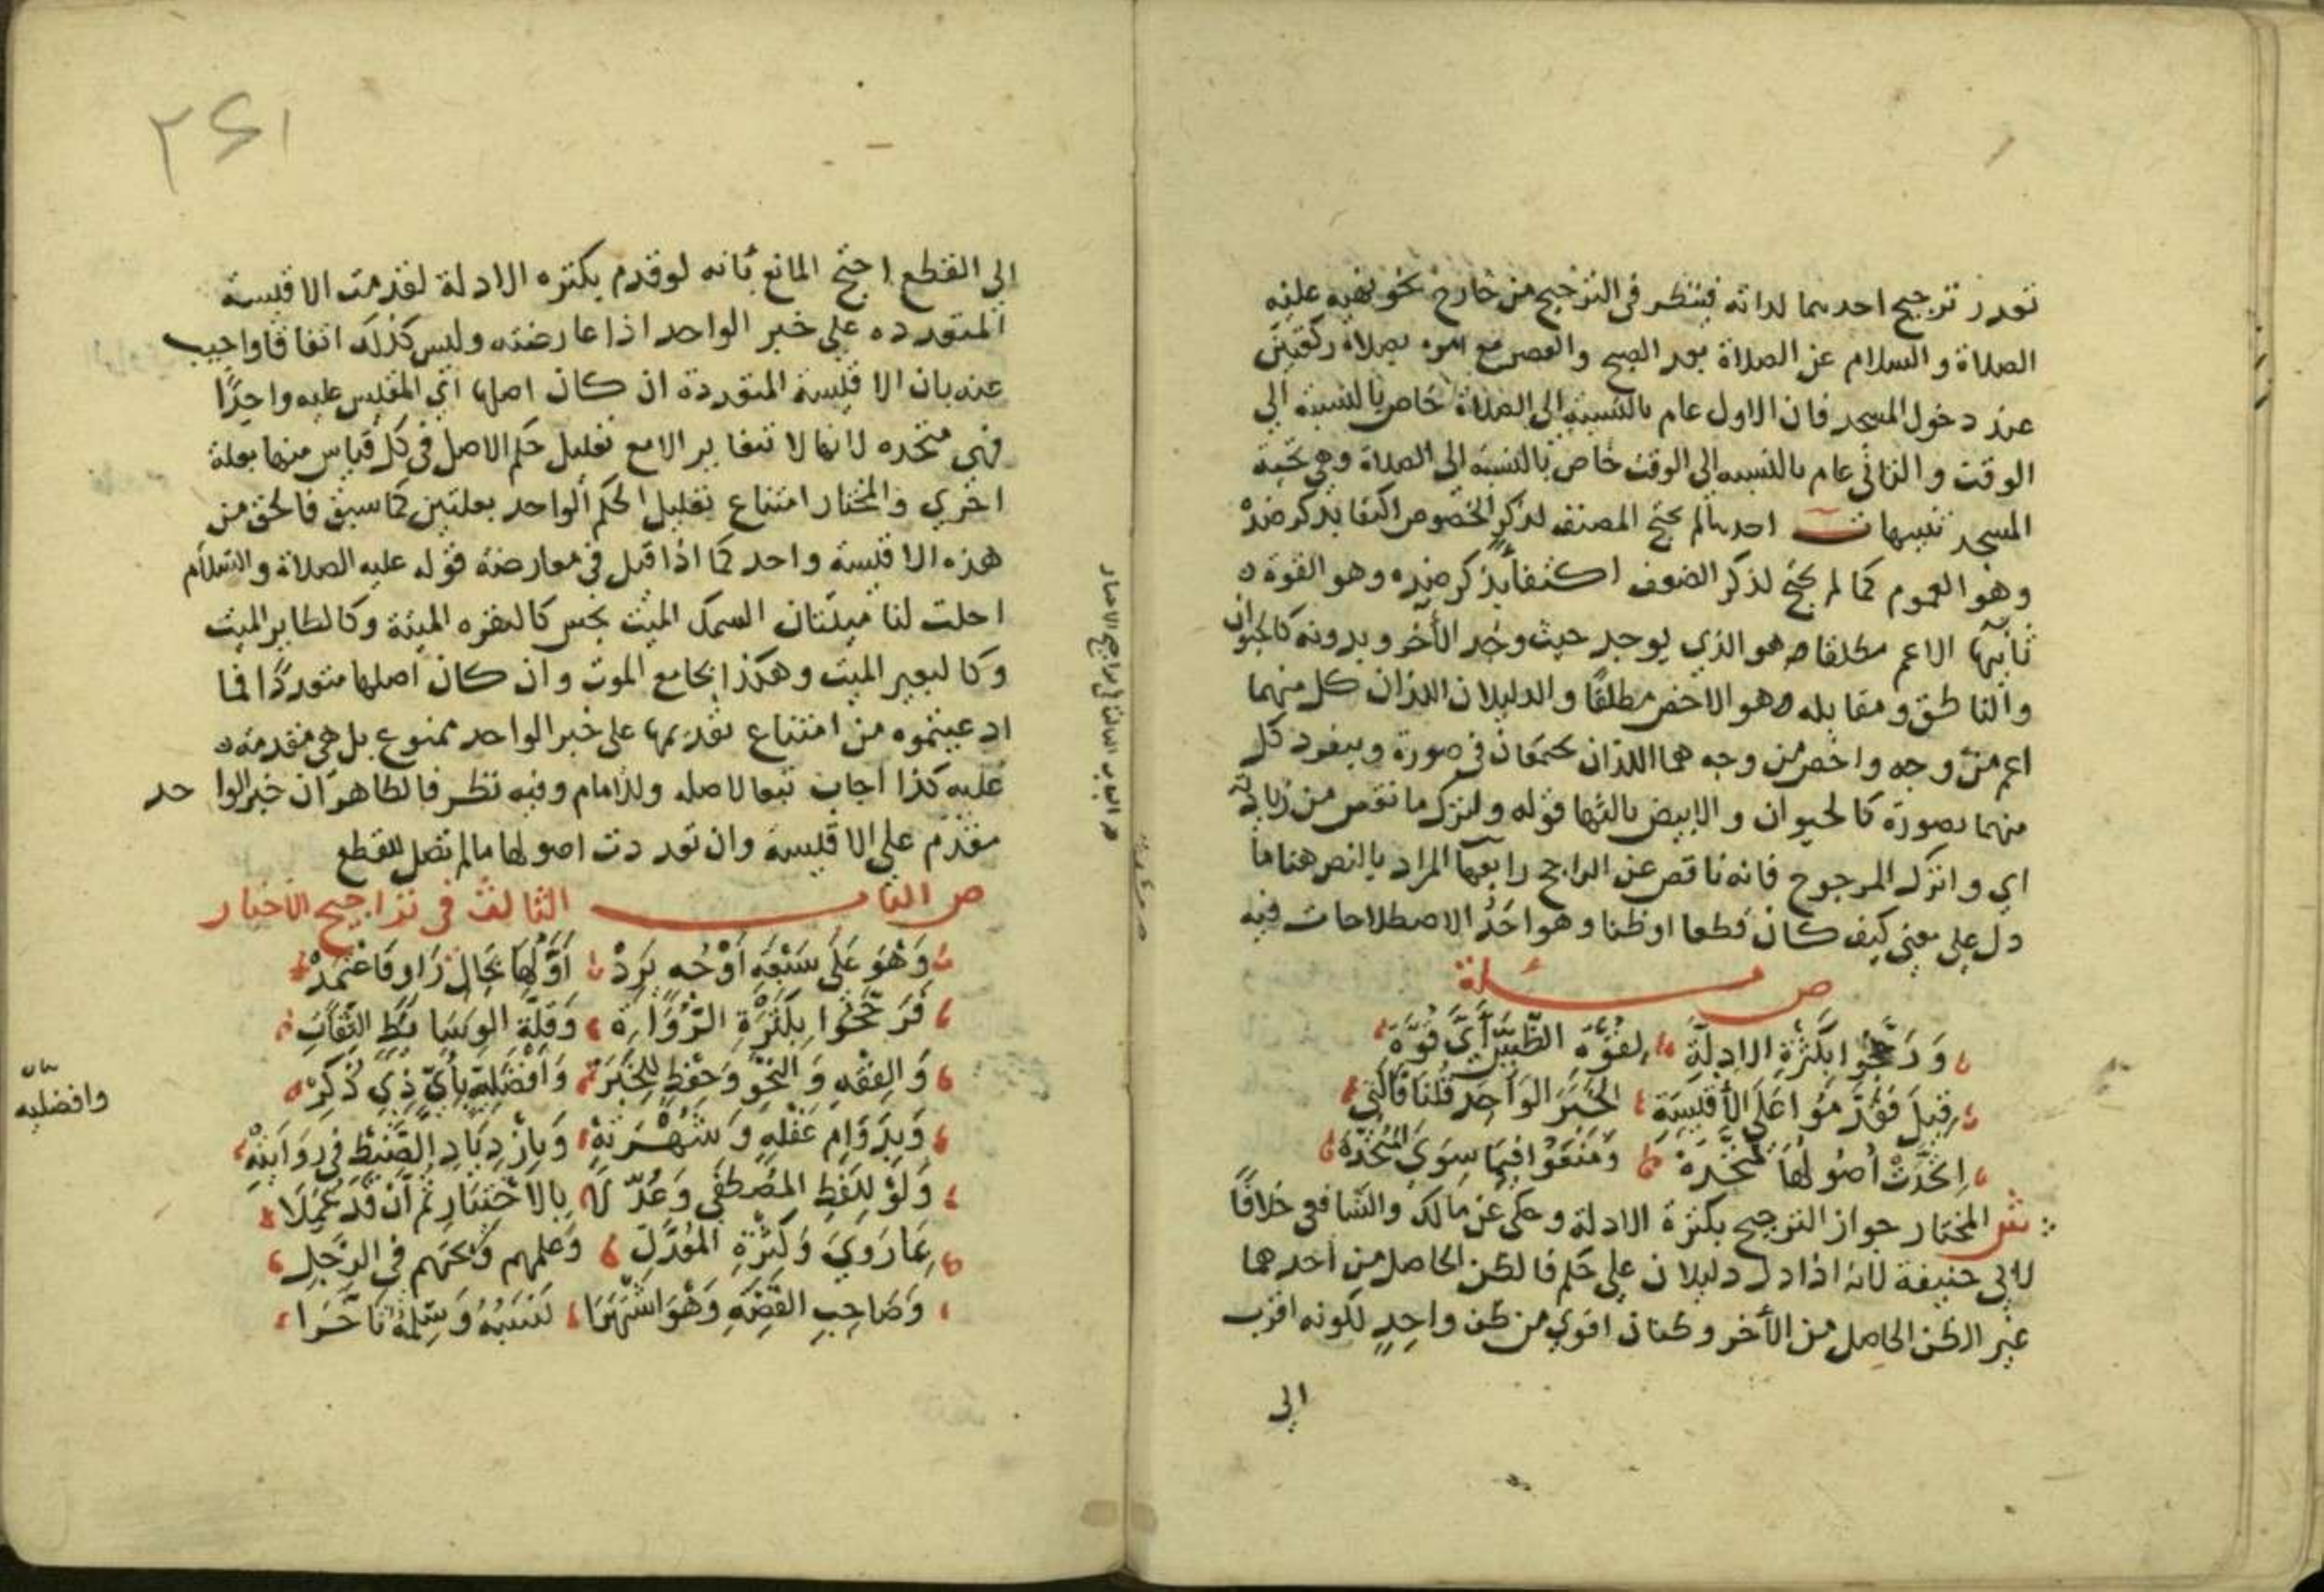 تعدر ترجيح احدهما لداته فينظر في الترجيح من خارج نحو نهيه عليه
الصلاة والسلام عن الصلاة بعد الصبح والعصر مع امره بصلاة ركعتين
عند دخول المسجد فان الاول عام بالنسبة الى الصلاة خاص بالنسبة الى
الوقت والثاني عام بالنسبه الى الوقت خاص بالنسبة الى الصلاة وهي تحية
المسجد تنبيهات احدها لم يحتج المصنف لذكر الخصوص اكتفا بذكر ضده
وهو العموم كما لم يحتج لذكر الضعف اكتفاء بذكر ضده وهو القوة
ثانيها الاعم مطلقا هو الذي يوجد حيث وجد الآخر وبدونه كالحيوان
والناطق ومقابله وهو الاخص مطلقا والدليلان اللذان كل منهما
اعم من وجه واخص من وجه هما اللذان يجتمعان في صورة وينفرد كل
منهما بصورة كالحيوان والابيض ثالثها قوله ولتترك ما نقص من زيادة
اي واترك المرجوح فانه ناقص عن الراجح رابعها المراد بالنص هنا ما
دل على معنى كيف كان قطعا او ظنا وهو احد الاصطلاحات فيه
ص مسئلة
وَرَجَّحُوا بِكَثْرَةِ الادِلَّةِ لِقُوَّةِ الظَّنَّيْنِ أَيَّ قُوَّةِ
قِيلَ فَقَدِّمُوا عَلَى الأَقْيِسَةِ الخَبَرَ الوَاحِدَ قُلْنَا فَالَّتِي
اتَّحَدَتْ أُصُولُهَا مُتَّحِدَهْ وَمَنَعُوا فِيمَا سِوَى المُتَّحِدَهْ
ش المختار جواز الترجيح بكثرة الادلة وحكى عن مالك والشافعي خلافا
لابي حنيفة لانه اذا دل دليلان على حكم فالظن الحاصل من احدهما
غير الظن الحاصل من الآخر وظنان اقوى من ظن واحد لكونه اقرب
الى
ص الباب الثالث في تراجيح الاخبار
٢٤١
الى القطع احتج المانع بانه لو قدم بكثره الادلة لقدمت الاقيسة
المتعدده على خبر الواحد اذا عارضته وليس كذلك اتفاقا واجيب
عنه بان الاقيسة المتعددة ان كان اصلها اي المقيس عليه واحدًا
فهي متحده لانها لا تتغاير الا مع تعليل حكم الاصل في كل قياس منها بعلة
اخري والمختار امتناع تعليل الحكم الواحد بعلتين كما سبق فالحق من
هذه الاقيسة واحد كما اذا قيل في معارضة قوله عليه الصلاة والسلام
احلت لنا ميتتان السمك الميت نجس كالبقره الميتة وكالطاير الميت
وكالبعير الميت وهكذا بجامع الموت وان كان اصلها متعددًا فما
ادعيتموه من امتناع تقديمها على خبر الواحد ممنوع بل هي مقدمة
عليه كذا اجاب تبعا لاصله وللامام وفيه نظر فالظاهر ان خبر الواحد
مقدم على الاقيسة وان تعددت اصولها ما لم تصل للقطع
ص الباب الثالث في تراجيح الاخبار
وَهْوَ عَلَى سَبْعَةِ أَوْجُهٍ يَرِدْ أَوَّلُهَا بِحَالِ رَاوٍ فَاعْتَمِدْ
فَرَجَّحُوا بِكَثْرَةِ الرُّوَاةِ وَقِلَّةِ الوَسَائِطِ الثِّقَاتِ
وَالفِقْهِ وَالنَّحْوِ وَحِفْظٍ لِلخَبَرْ وَأَفْضَلِيَّةٍ بِأَيِّ ذِي ذُكِرْ
وافضليه
وَبِدَوَامِ عَقْلِهِ وَشُهْرَتِهْ وَبِازْدِيَادِ الضَّبْطِ فِي رِوَايَتِهْ
وَلَوْ لِلَفْظِ المُصْطَفَى وَعُدِّلَا بِالاخْتِبَارِ ثُمَّ أَنْ قَدْ عَمِلَا
بِمَا رَوَى وَكَثْرَةِ المُعَدِّلِ وَعِلْمِهِم وَبَحْثِهِم فِي الرَّجُلِ
وَصَاحِبِ القَضِيَّةِ وَهْوَ اشْتَهَرَا نَسَبُهُ وَسِلْمُهُ تَأَخَّرَا